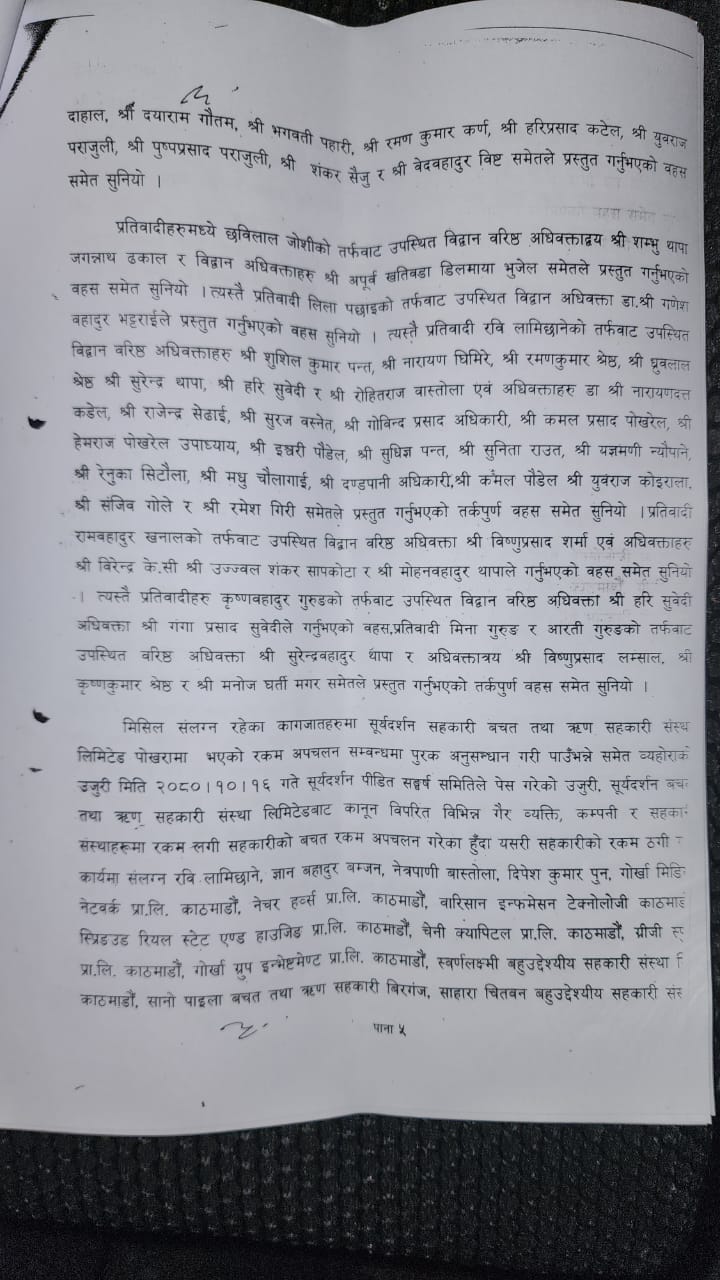 दाहाल, श्री दयाराम गौतम, श्री भगवती पहारी, श्री रमण कुमार कर्ण, श्री हरिप्रसाद कटेल, श्री युवराज
पराजुली, श्री पुष्पप्रसाद पराजुली, श्री शंकर सैजु र श्री वेदवहादुर विष्ट समेतले प्रस्तुत गर्नुभएको वहस
समेत सुनियो ।
प्रतिवादीहरुमध्ये छविलाल जोशीको तर्फवाट उपस्थित विद्वान वरिष्ठ अधिवक्ताद्वय श्री शम्भु थापा
जगन्नाथ ढकाल र विद्वान अधिवक्ताहरु श्री अपूर्व खतिवडा डिलमाया भुजेल समेतले प्रस्तुत गर्नुभएको
वहस समेत सुनियो । त्यस्तै प्रतिवादी लिला पछाइको तर्फवाट उपस्थित विद्वान अधिवक्ता डा.श्री गणेश
वहादुर भट्टराईले प्रस्तुत गर्नुभएको वहस सुनियो । त्यस्तै प्रतिवादी रवि लामिछानेको तर्फवाट उपस्थित
विद्वान वरिष्ठ अधिवक्ताहरु श्री शुशिल कुमार पन्त, श्री नारायण घिमिरे, श्री रमणकुमार श्रेष्ठ, श्री ध्रुवलाल
श्रेष्ठ श्री सुरेन्द्र थापा, श्री हरि सुवेदी र श्री रोहितराज वास्तोला एवं अधिवक्ताहरु डा श्री नारायणदत्त
कडेल, श्री राजेन्द्र सेढाई, श्री सुरज वस्नेत, श्री गोविन्द प्रसाद अधिकारी, श्री कमल प्रसाद पोखरेल, श्री
हेमराज पोखरेल उपाध्याय, श्री इश्वरी पौडेल, श्री सुधिज्ञ पन्त, श्री सुनिता राउत, श्री यज्ञमणी न्यौपाने,
श्री रेनुका सिटौला, श्री मधु चौलागाई, श्री दण्डपानी अधिकारी,श्री कमल पौडेल श्री युवराज कोइराला,
श्री संजिव गोले र श्री रमेश गिरी समेतले प्रस्तुत गर्नुभएको तर्कपुर्ण वहस समेत सुनियो । प्रतिवादी
रामवहादुर खनालको तर्फवाट उपस्थित विद्वान वरिष्ठ अधिवक्ता श्री विष्णुप्रसाद शर्मा एवं अधिवक्ताहरु
श्री विरेन्द्र के.सी श्री उज्ज्वल शंकर सापकोटा र श्री मोहनवहादुर थापाले गर्नुभएको वहस समेत सुनियो
। त्यस्तै प्रतिवादीहरु कृष्णवहादुर गुरुङको तर्फवाट उपस्थित विद्वान वरिष्ठ अधिवक्ता श्री हरि सुवेदी
अधिवक्ता श्री गंगा प्रसाद सुवेदीले गर्नुभएको वहस,प्रतिवादी मिना गुरुङ र आरती गुरुङको तर्फवाट
उपस्थित वरिष्ठ अधिवक्ता श्री सुरेन्द्रवहादुर थापा र अधिवक्तात्रय श्री विष्णुप्रसाद लम्साल, श्री
कृष्णकुमार श्रेष्ठ र श्री मनोज घर्ती मगर समेतले प्रस्तुत गर्नुभएको तर्कपुर्ण वहस समेत सुनियो ।
मिसिल संलग्न रहेका कागजातहरुमा सूर्यदर्शन सहकारी बचत तथा ऋण सहकारी संस्था
लिमिटेड पोखरामा भएको रकम अपचलन सम्वन्धमा पुरक अनुसन्धान गरी पाउँभन्ने समेत व्यहोराको
उजुरी मिति २०८०।१०।१६ गते सूर्यदर्शन पीडित सङ्घर्ष समितिले पेस गरेको उजुरी, सूर्यदर्शन बचत
तथा ऋण सहकारी संस्था लिमिटेडवाट कानून विपरित विभिन्न गैर व्यक्ति, कम्पनी र सहकारी
संस्थाहरूमा रकम लगी सहकारीको बचत रकम अपचलन गरेका हुँदा यसरी सहकारीको रकम ठगी
कार्यमा संलग्न रवि लामिछाने, ज्ञान बहादुर बम्जन, नेत्रपाणी वास्तोला, दिपेश कुमार पुन, गोर्खा मिडि
नेटवर्क प्रा.लि. काठमाडौं, नेचर हर्व्स प्रा.लि. काठमाडौं, वारिसान इन्फमेसन टेक्नोलोजी काठमाडौं
स्प्रिडउड रियल स्टेट एण्ड हाउजिङ प्रा.लि. काठमाडौं, चेनी क्यापिटल प्रा.लि. काठमाडौं, ग्रीजी
प्रा.लि. काठमाडौं, गोर्खा ग्रुप इन्भेष्टमेण्ट प्रा.लि. काठमाडौं, स्वर्णलक्ष्मी बहुउद्देश्यीय सहकारी संस्था
काठमाडौं, सानो पाइला बचत तथा ऋण सहकारी बिरगंज, साहारा चितवन बहुउद्देश्यीय सहकारी संस
पाना ५